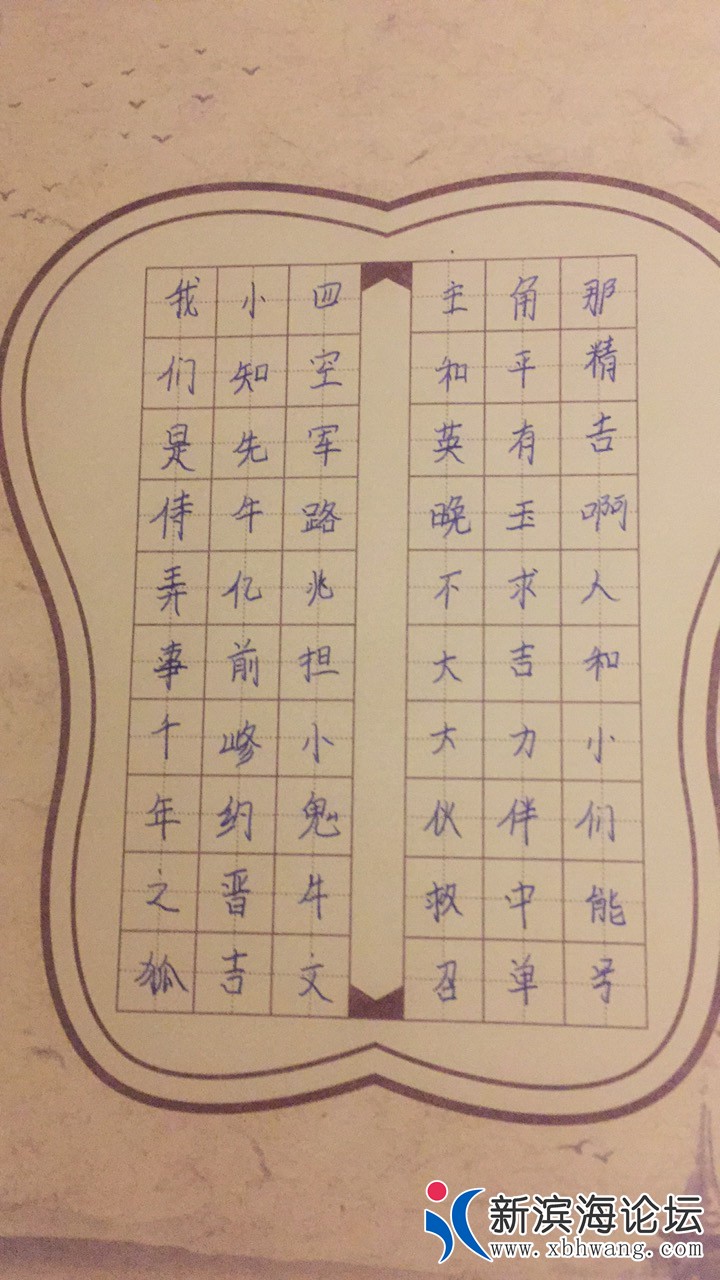 我们是侍弄事千年之狐
小知先牛亿前约晋吉
四空军路兆担小鬼牛文
主角那
和平精
英有吉
晚玉啊
不求人
大吉和
大力小
伙伴们
救中能
召单号
新滨海论坛
www.xbhwang.com